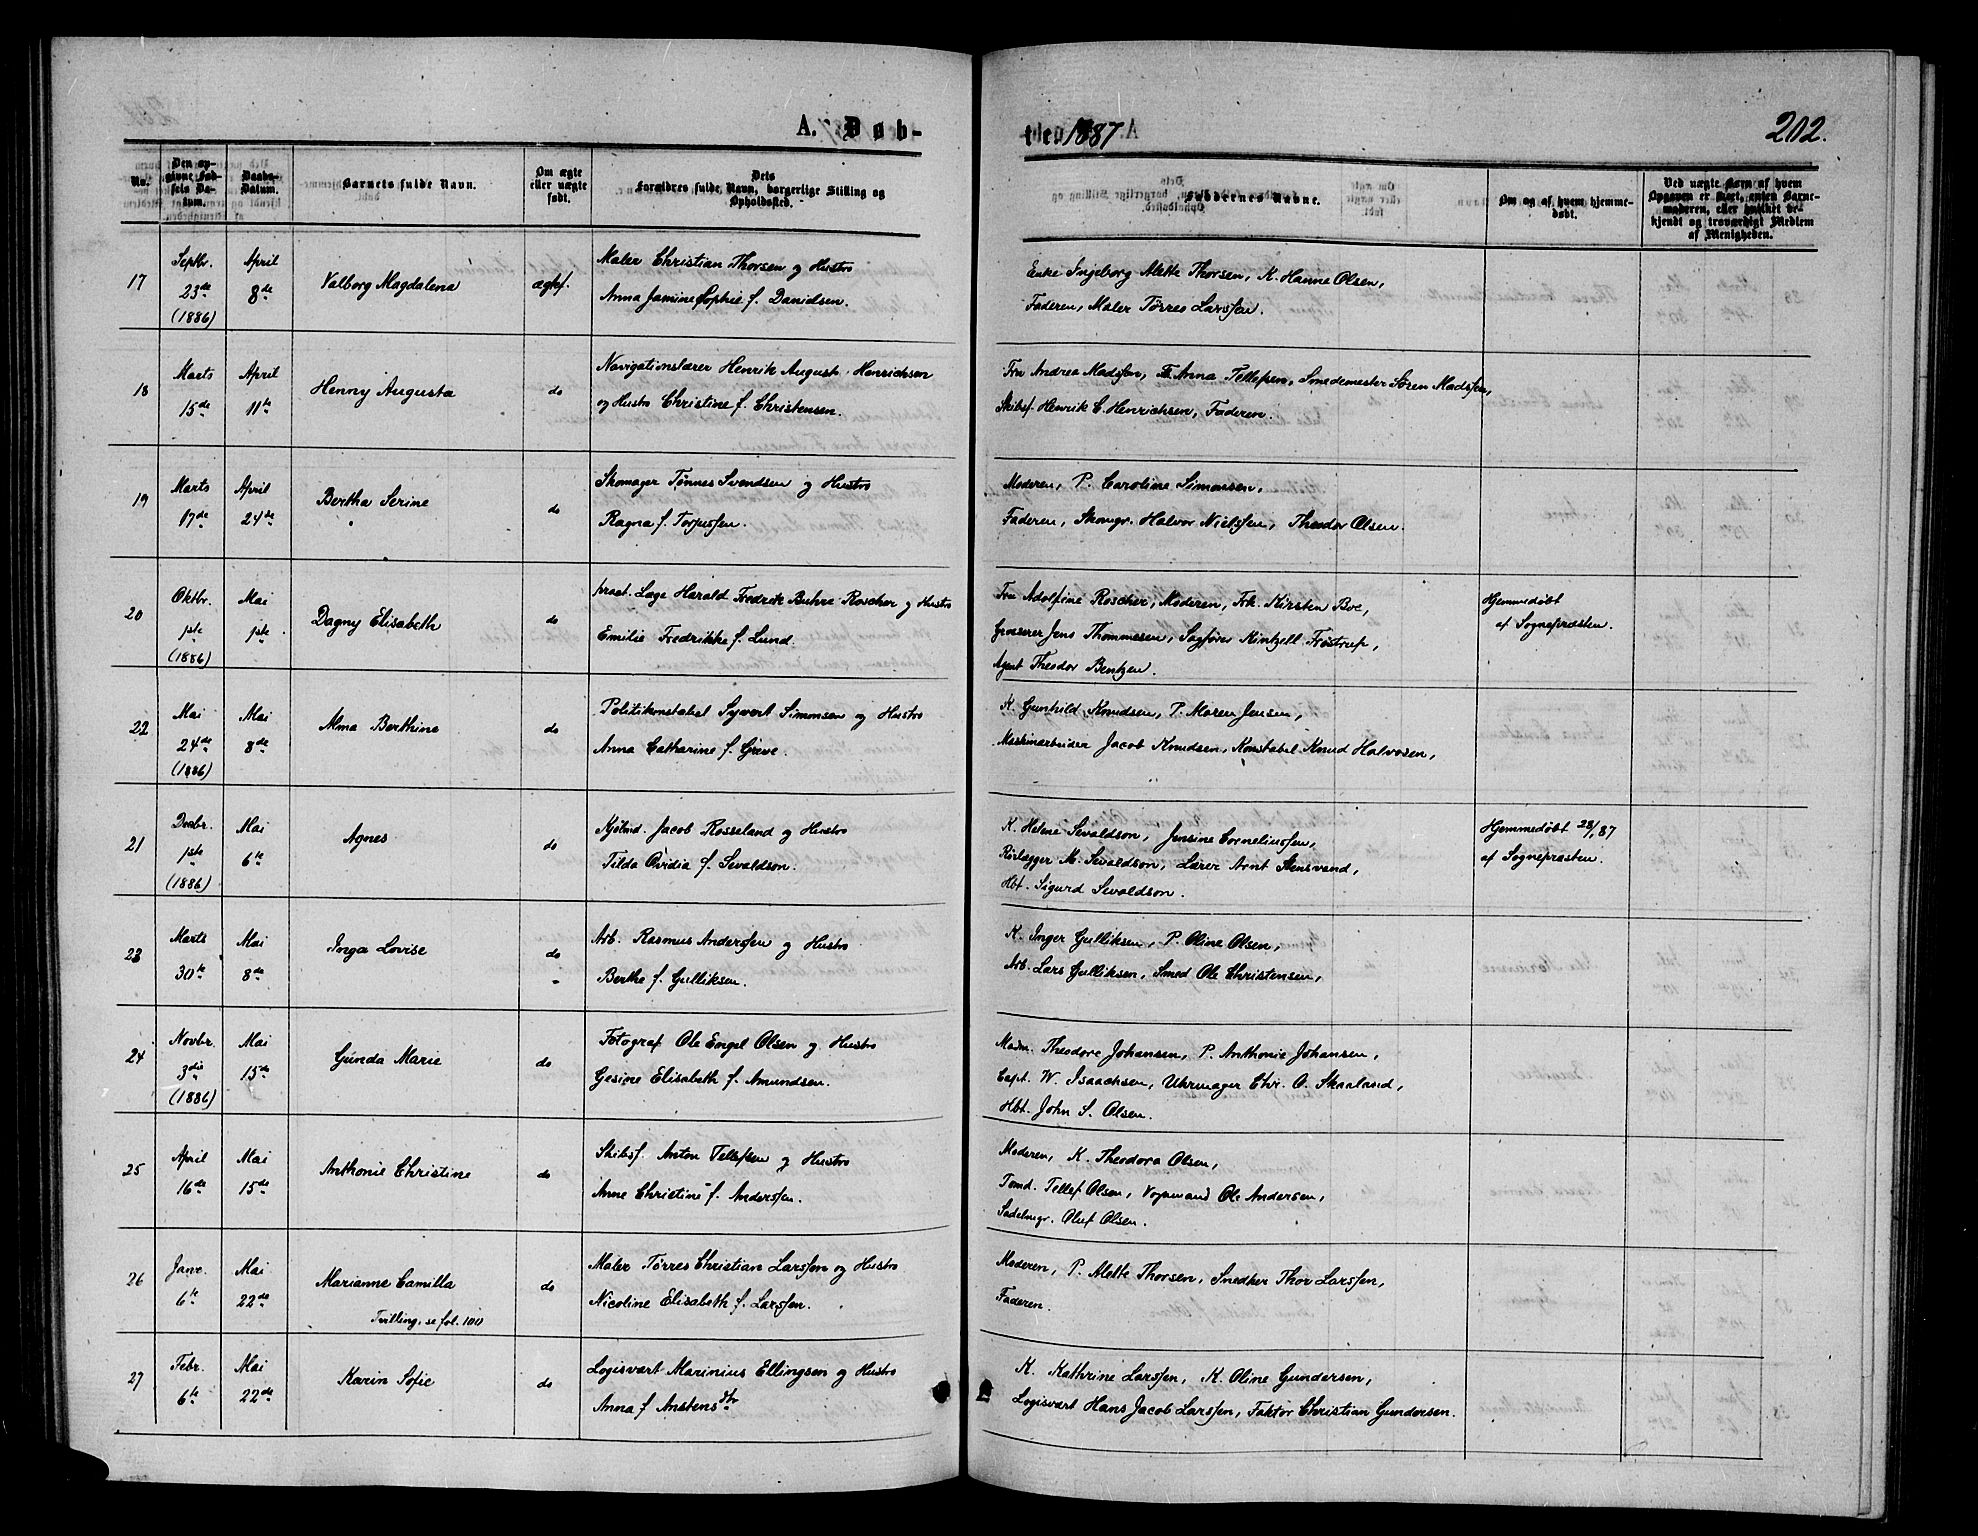 A. Døb-
te. 1887
202.
No.
Den op-
givne Fød-
sels Da-
tum.
Daabs-
Datum.
Barnets fulde Navn.
Om ægte
eller uægte
født.
Dets
Forældres fulde Navn, borgerlige Stilling og
Opholdssted.
Faddernes Navne.
Om og af hvem hjemme-
døbt.
Ved uægte Børn af hvem
Opgaven er skeet, enten Barne-
moderen, eller hvilket be-
kjendt og troværdigt Medlem
af Menigheden.
17
Septbr.
23de
(1886)
April
8de
Valborg Magdalena
ægtef.
Maler Christian Thorsen og Hustro
Anna Jamine Sophie f. Danidsen.
Enke Ingeborg Alette Thorsen, K. Hanne Olsen,
Faderen, Maler Tørres Larssen.
18
Marts
15de
April
11te
Henny Augusta
do
Navigationslærer Henrik August Henrichsen
og Hustro Christine f. Christensen.
Fru Andrea Madssen, Anna Tellefsen, Smedemester Søren Madssen,
Skibsf. Henrik C. Henrichsen, Faderen.
19
Marts
17de
April
24de
Bertha Serine
do
Skomager Tønnes Svendsen og Hustro
Ragna f. Torjussen.
Moderen, P. Caroline Simonsen,
Faderen, Skomgr. Halvor Nielssen, Theodor Olsen.
20
Oktbr.
1ste
(1886)
Mai
1ste
Dagny Elisabeth
do
pract. Læge Harald Fredrik Buhre Roscher og Hustro
Emilie Fredrikke f. Lund.
Fru Adolfine Roscher, Moderen, Frk. Kirsten Boe,
Grosserer Jens Thommesen, Sagfører Kintzell Frøstrup,
Agent Theodor Bentzen.
Hjemmedøbt
af Sognepræsten.
22
Mai
24de
(1886)
Mai
8de
Alma Berthine
do
Politikonstabel Syvert Simonsen og Hustro
Anna Catharine f. Greve.
K. Gunhild Knudsen, P. Maren Jensen,
Maskinarbeider Jacob Knudsen, Konstabel Knud Halvosen,
21
Decbr.
1ste
(1886)
Mai
6te
Agnes
do
Kjøbmd. Jacob Rosseland og Hustro
Tilda Ovidia f. Sevaldson.
K. Helene Sevaldson, Jensine Corneliussen,
Rørlægger M. Sevaldson, Lærer Arnt Stensvand,
Hbt. Sigurd Sevaldson.
Hjemmedøbt 28/1 87
af Sognepræsten.
23
Marts
30te
Mai
8de
Inga Lovise
do
Arb. Rasmus Anderssen og Hustro
Berthe f. Gulliksen.
K. Inger Gulliksen, P. Oline Olsen,
Arb. Lars Gulliksen, Smed Ole Christensen,
24
Novbr.
3die
(1886)
Mai
15de
Gunda Marie
do
Fotograf Ole Engel Olsen og Hustro
Gesine Elisabeth f. Amundsen.
Madm. Theodore Johansen, P. Anthonie Johansen,
Capt. W. Isaachsen, Uhrmager Chr. O. Skaaland,
Hbt. John S. Olsen.
25
April
16de
Mai
15de
Anthonie Christine
do
Skibsf. Anton Tellefsen og Hustro
Anne Christine f. Anderssen.
Moderen, K. Theodora Olsen,
Tømd. Tellef Olsen, Vognmand Ole Andersen,
Sadelmgr. Oluf Olsen.
26
Janr.
6te
Mai
22de
Marianne Camilla
Tvilling, se fol. 100
do
Maler Tørres Christian Larssen og Hustro
Nicoline Elisabeth f. Larssen.
Moderen, P. Alette Thorsen, Snedker Thor Larssen,
Faderen.
27
Febr.
6te
Mai
22de
Karin Sofie
do
Logisvært Marinius Ellingsen og Hustro
Anna f Anstensdtr
K. Kathrine Larssen, K. Oline Gundersen,
Logisvært Hans Jacob Larssen, Faktor Christian Gundersen.